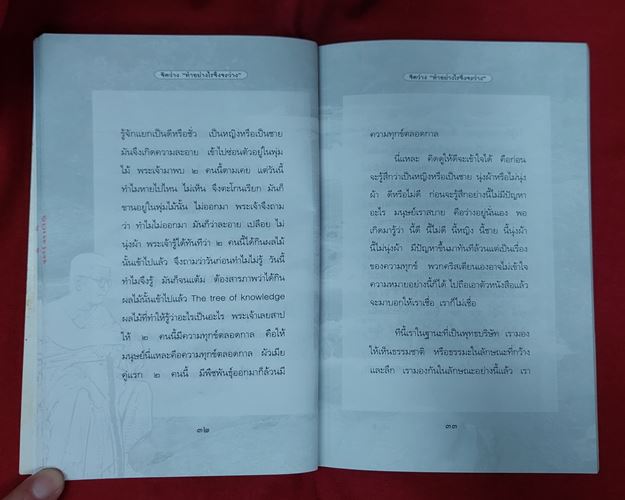 จิตว่าง "ทำอย่างไรจึงจะว่าง"
รู้จักแยกเป็นดีหรือชั่ว เป็นหญิงหรือเป็นชาย
มันจึงเกิดความละอาย เข้าไปซ่อนตัวอยู่ในพุ่ม
ไม้ พระเจ้ามาพบ ๒ คนนี้ตามเคย แต่วันนี้
ทำไมหายไปไหน ไม่เห็น จึงตะโกนเรียก มันก็
ขานอยู่ในพุ่มไม้นั้น ไม่ออกมา พระเจ้าจึงถาม
ว่า ทำไมไม่ออกมา มันก็ว่าละอาย เปลือย ไม่
นุ่งผ้า พระเจ้ารู้ได้ทันทีว่า ๒ คนนี้ได้กินผลไม้
นั้นเข้าไปแล้ว จึงถามว่าวันก่อนทำไมไม่รู้ วันนี้
ทำไมจึงรู้ มันก็จนแต้ม ต้องสารภาพว่าได้กิน
ผลไม้นั้นเข้าไปแล้ว The tree of knowledge
ผลไม้ที่ทำให้รู้ว่าอะไรเป็นอะไร พระเจ้าเลยสาป
ให้ ๒ คนนี้มีความทุกข์ตลอดกาล คือให้
มนุษย์นี่แหละคือความทุกข์ตลอดกาล ผัวเมีย
คู่แรก ๒ คนนี้ มีพืชพันธุ์ออกมาก็ล้วนมี
๓๒
จิตว่าง "ทำอย่างไรจึงจะว่าง"
ความทุกข์ตลอดกาล
นี่แหละ คิดดูให้ดีจะเข้าใจได้ คือก่อน
จะรู้สึกว่าเป็นหญิงหรือเป็นชาย นุ่งผ้าหรือไม่นุ่ง
ผ้า ดีหรือไม่ดี ก่อนจะรู้สึกอย่างนี้ไม่มีปัญหา
อะไร มนุษย์เราสบาย คือว่างอยู่นั่นเอง พอ
เกิดมารู้ว่า นี้ดี นี้ไม่ดี นี้หญิง นี้ชาย นี้นุ่งผ้า
นี้ไม่นุ่งผ้า มีปัญหาขึ้นมาทันทีล้วนแต่เป็นเรื่อง
ของความทุกข์ พวกคริสเตียนเองอาจไม่เข้าใจ
ความหมายอย่างนี้ก็ได้ ไปถือเอาตัวหนังสือแล้ว
จะมาบอกให้เราเชื่อ เราก็ไม่เชื่อ
ทีนี้เราในฐานะที่เป็นพุทธบริษัท เรามอง
ให้เห็นธรรมชาติ หรือธรรมะในลักษณะที่กว้าง
และลึก เรามองกันในลักษณะอย่างนี้แล้ว เรา
๓๓